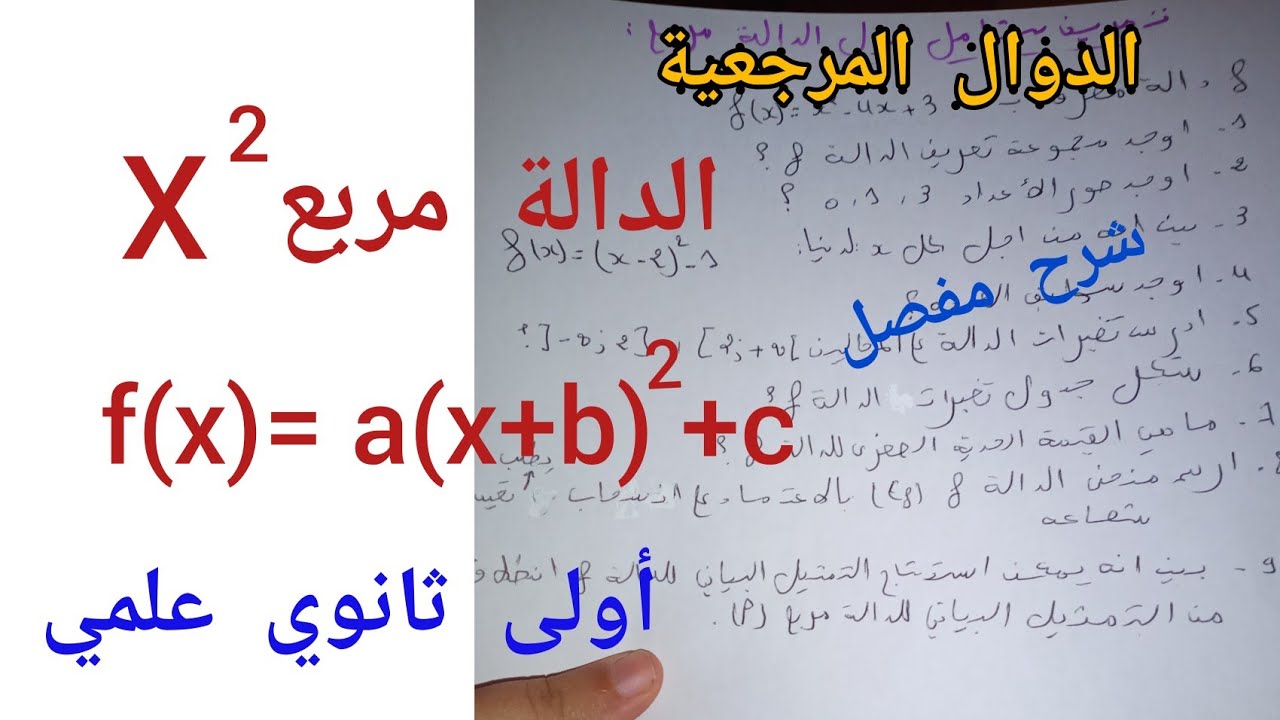 الدوال المرجعية
X²
الدالة مربع
f(x)= a(x+b)²+c
أولى ثانوي علمي
شرح مفصل
f(x)= x² - 4x + 3
1. اوجد مجموعة تعريف الدالة f ؟
2. اوجد صور الأعداد 3 ، 1 ، 0 ؟
3. بين انه من اجل كل x لدينا:
f(x) = (x-2)² - 1
4. اوجد
5. ادرس تغيرات الدالة
6. شكل جدول تغيرات الدالة f ؟
7. ما هي القيمة الحدية الصغرى للدالة f ؟
8. ارسم منحنى الدالة f (Cf) بالاعتماد على انسحاب
شعاعه
9. بين انه يمكن استنتاج التمثيل البياني للدالة f
من التمثيل البياني للدالة مربع (P).